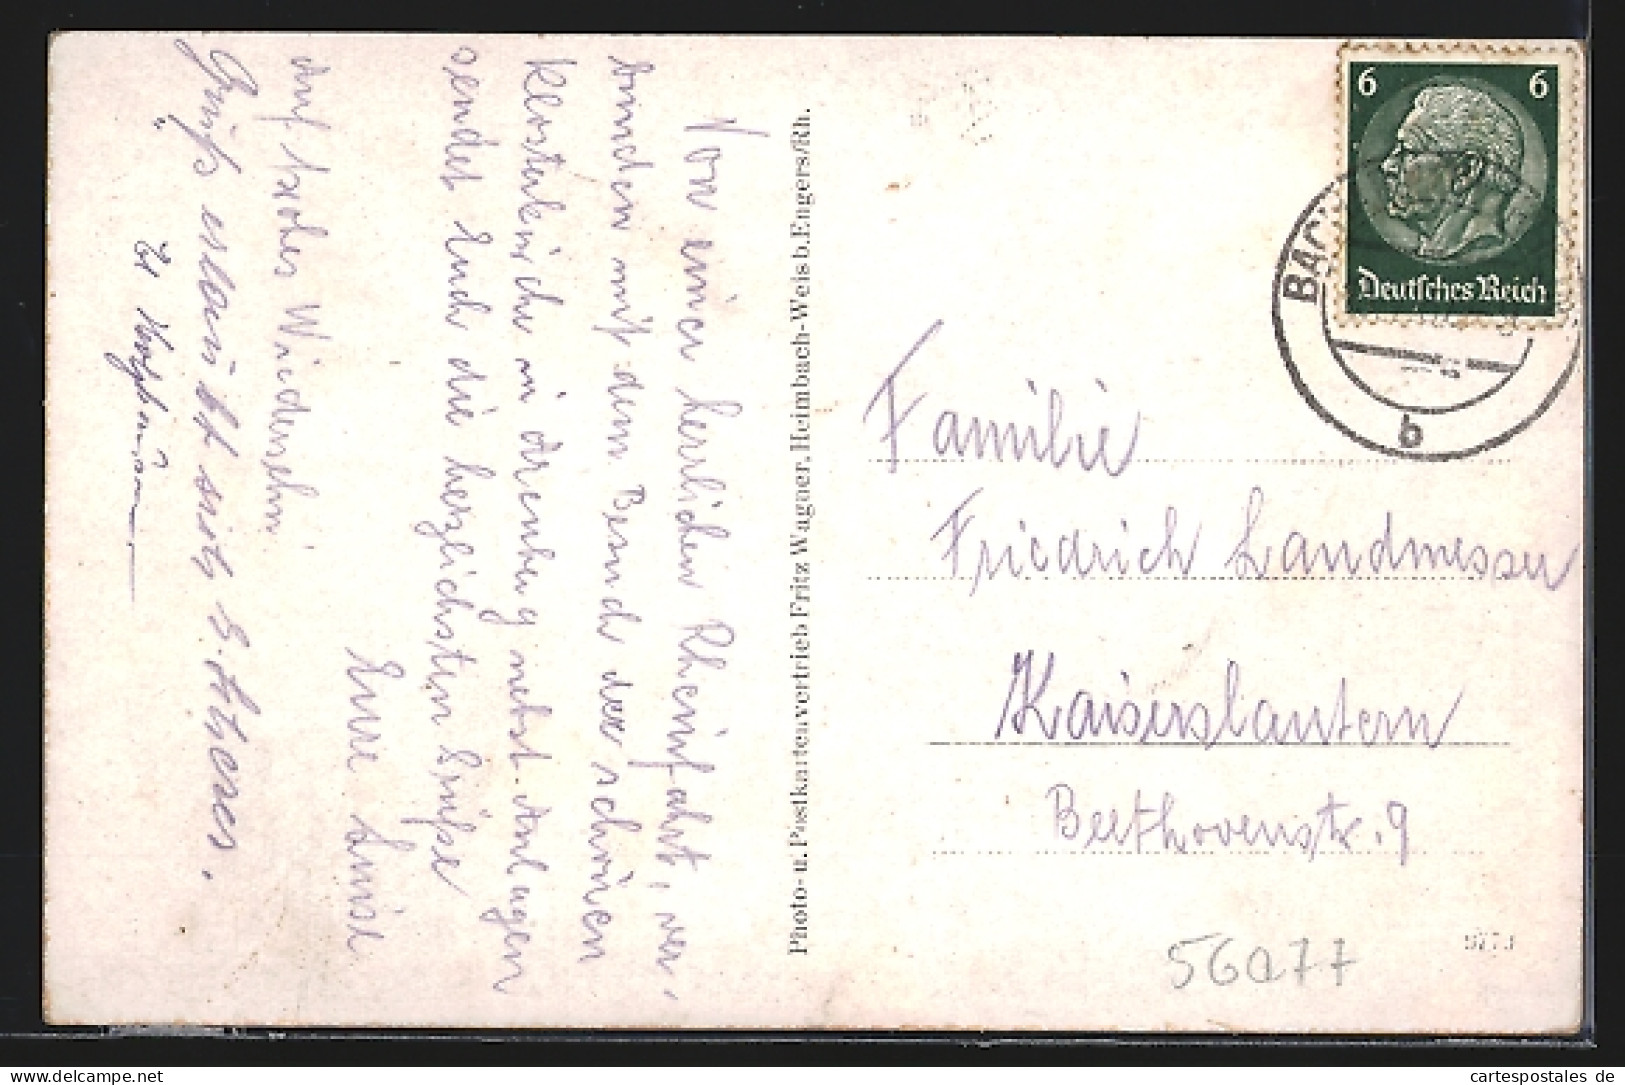 Von einer herrlichen Rheinfahrt, ver-
bunden mit dem Besuch der schönen
Klosterkirche in Arenberg nebst Anlagen
sendet Euch die herzlichsten Grüße
Eure Luise
Auf frohes Wiedersehn
Grüß erlaubt sich
Photo- u. Postkartenvertrieb Fritz Wagner, Heimbach-Weis b. Engers/Rh.
6 6
Deutsches Reich
BAC
b
Familie
Friedrich Landmesser
Kaiserslautern
Beethovenstr. 9
56077
delcampe.net
cartespostales de